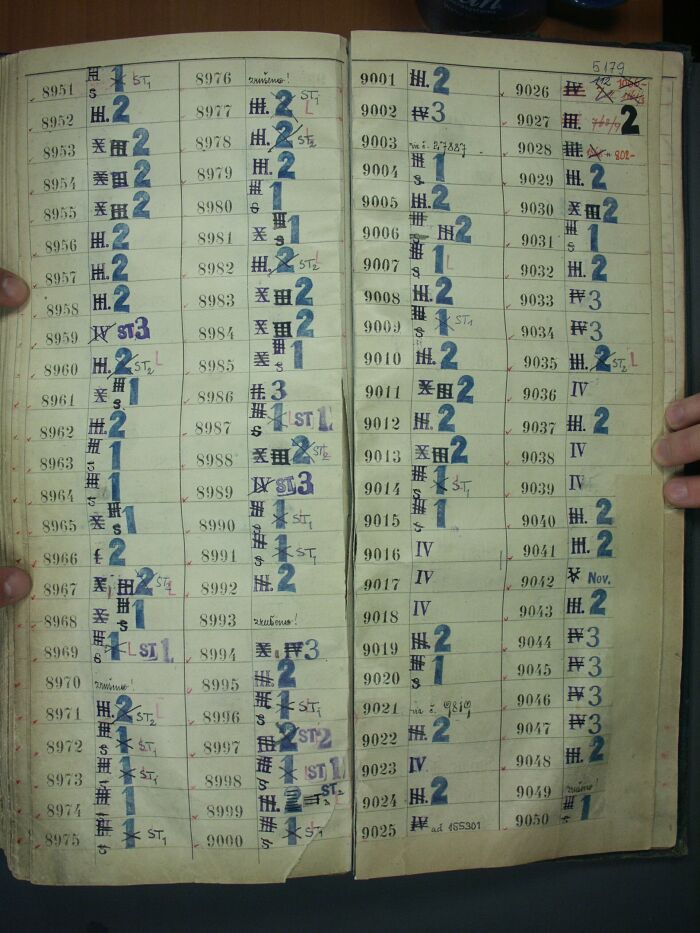 5179
8951 III S 1 ST1
8952 III. 2
8953 X III 2
8954 X III 2
8955 X III 2
8956 III. 2
8957 III. 2
8958 III. 2
8959 IV ST 3
8960 III. 2 ST2 L
8961 X III S 1
8962 III. 2
8963 III S 1
8964 III S 1
8965 X III S 1
8966 2
8967 X III 2 ST2 L
8968 X III S 1
8969 III S 1 L ST 1
8970
8971 III. 2 ST2 L
8972 III S 1 ST1
8973 III S 1 ST1
8974 III S 1
8975 III S 1 ST1
8976 zrušeno!
8977 III. 2 ST1 L
8978 III. 2 ST2
8979 III. 2
8980 III S 1
8981 X III S 1
8982 III. 2 ST2 L
8983 X III 2
8984 X III 2
8985 X III S 1
8986 II. 3
8987 III S 1 L ST 1
8988 X III 2 ST2
8989 IV ST 3
8990 III S 1 ST1
8991 III S 1 ST1
8992 III. 2
8993 zrušeno!
8994 X. IV 3
8995 III. 2
8996 III S 1 ST1
8997 III 2 ST 2
8998 III S 1 ST 1
8999 III. 2 ST2
9000 III S 1 ST1
9001 III. 2
9002 IV 3
9003 via č. 27887
9004 III S 1
9005 III. 2
9006 III S III 2
9007 III S 1 L
9008 III. 2
9009 III S 1 ST1
9010 III. 2
9011 X III 2
9012 III. 2
9013 X III 2
9014 III S 1 ST1
9015 III S 1
9016 IV
9017 IV
9018 IV
9019 III. 2
9020 III S 1
9021 via č. 9819
9022 III. 2
9023 IV
9024 III. 2
9025 IV ad 155301
9026 IV
9027 III. 2
9028 III 802-
9029 III. 2
9030 X III 2
9031 III S 1
9032 III. 2
9033 IV 3
9034 IV 3
9035 III. 2 ST2 L
9036 IV
9037 III. 2
9038 IV
9039 IV
9040 III. 2
9041 III. 2
9042 V Nov.
9043 III. 2
9044 IV 3
9045 IV 3
9046 IV 3
9047 IV 3
9048 III. 2
9049
9050 III S 1